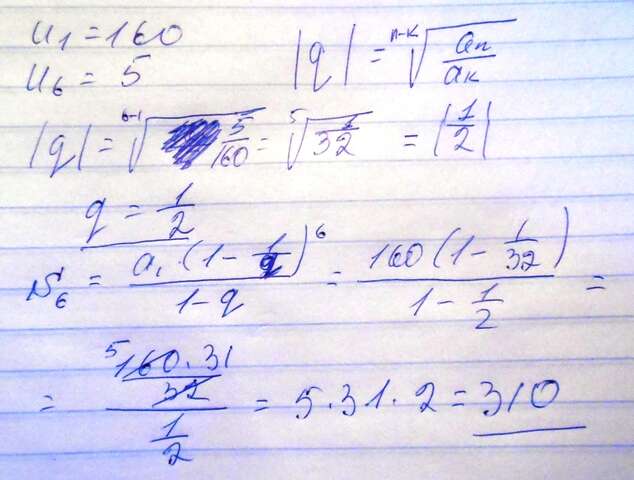 u₁ = 160
u₆ = 5
|q| = ⁿ⁻ᵏ√(aₙ/aₖ)
|q| = ⁶⁻¹√(5/160) = ⁵√(1/32) = |1/2|
q = 1/2
S₆ = a₁·(1 - 1/q)⁶/(1 - q) = 160(1 - 1/32)/(1 - 1/2) =
= (⁵160·31/32)/(1/2) = 5·31·2 = 310